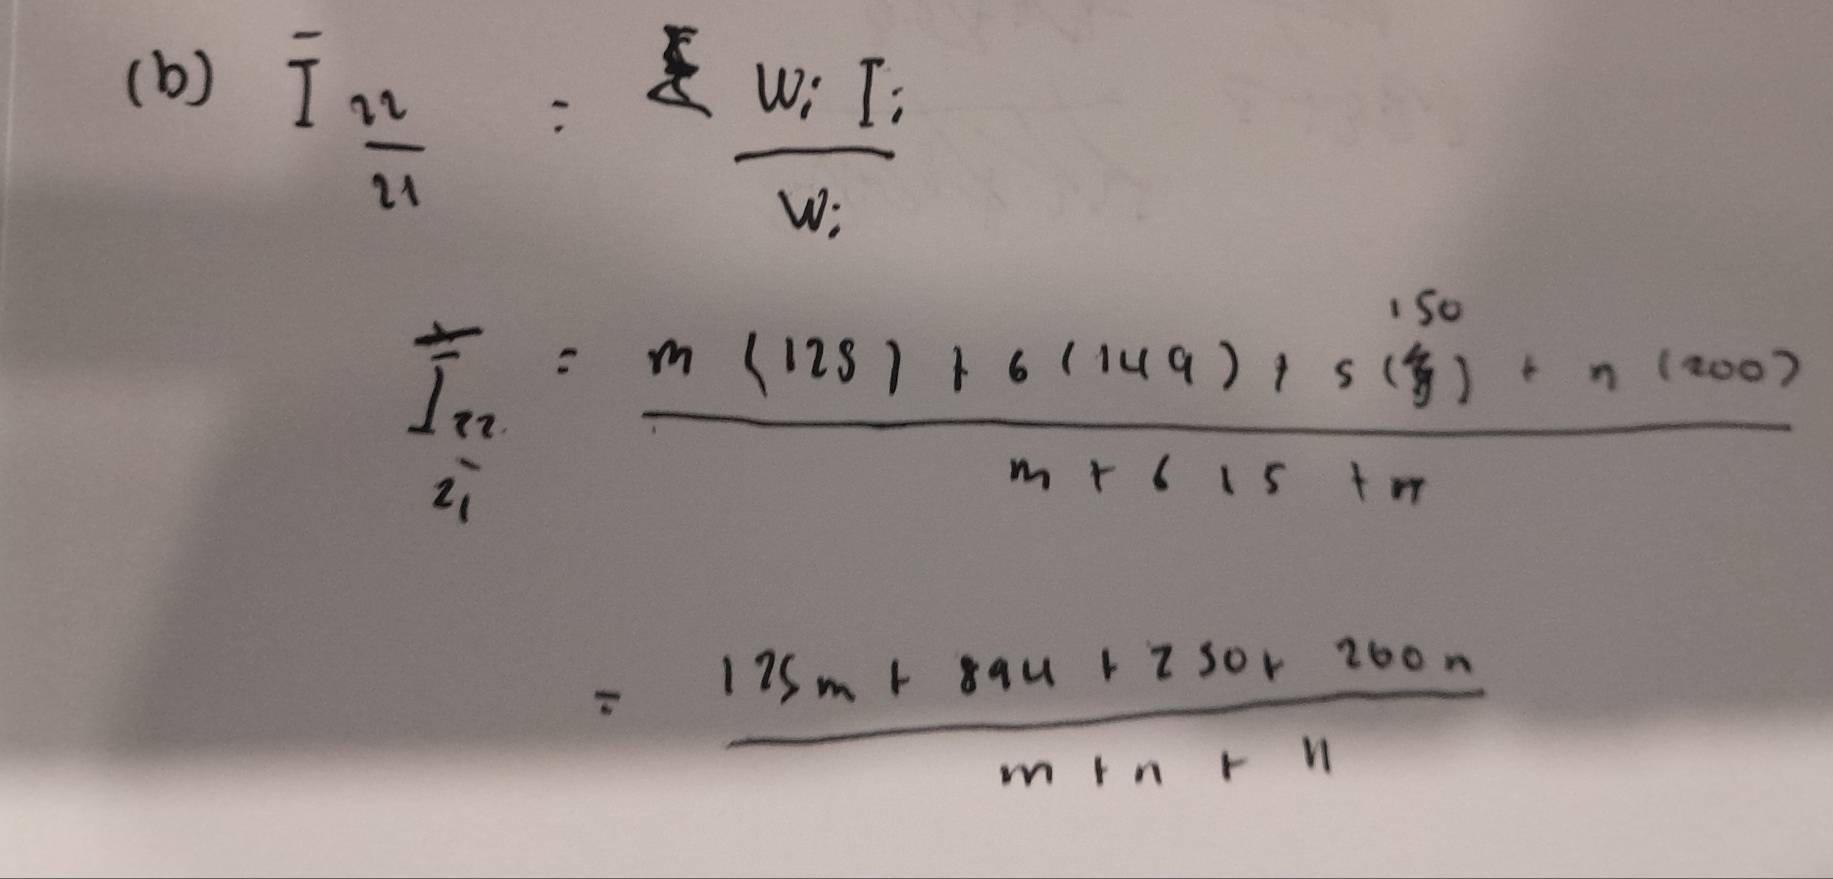 (b) Ī 22/21 = Σ Wi Ii / Wi
Ī 22/21 = m (125) + 6 (149) + 5 (150) + n (200) / m + 6 + 5 + n
= 125m + 894 + 250 + 200n / m + n + 11